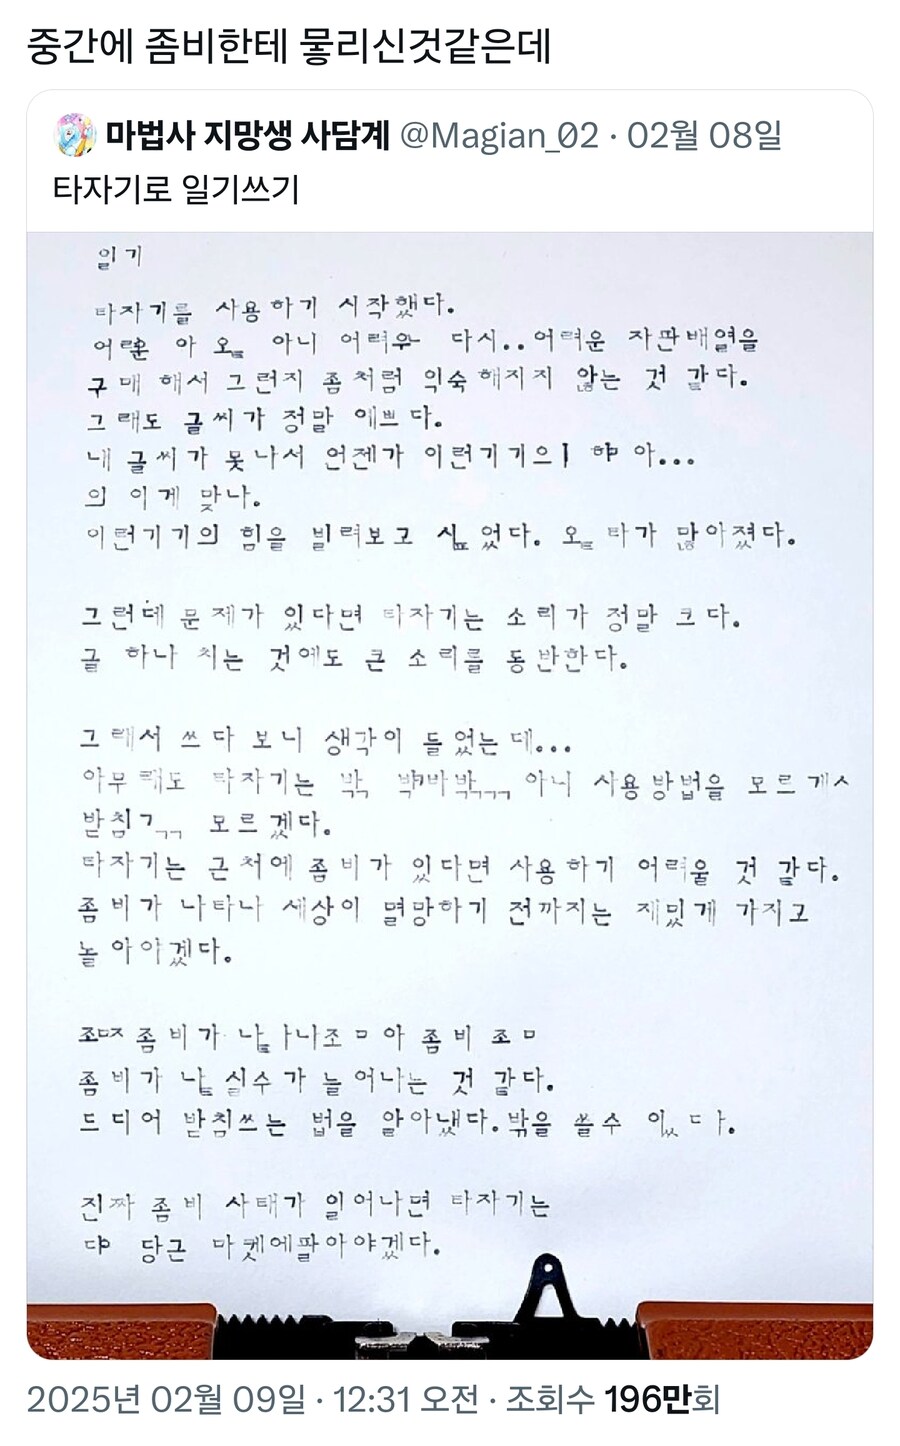 중간에 좀비한테 물리신것같은데
마법사 지망생 사담계 @Magian_02 · 02월 08일
타자기로 일기쓰기
일기
타자기를 사용하기 시작했다.
아 오 아니 다시..어려운 자판배열을
구매 해서 그런지 좀처럼 익숙해지지 않는 것 같다.
그래도 글씨가 정말 예쁘다.
내 글씨가 못나서 언젠가 이런기기으ㅣ 아...
의 이게 맞나.
이런기기의 힘을 빌려보고 싶었다. 오 타가 많아졌다.
그런데 문제가 있다면 타자기는 소리가 정말 크다.
글 하나 치는 것에도 큰 소리를 동반한다.
그래서 쓰다 보니 생각이 들었는데...
아무래도 타자기는 밖 아니 사용방법을 모르게ㅅ
받침ㄱㄱㄱ 모르겠다.
타자기는 근처에 좀비가 있다면 사용하기 어려울 것 같다.
좀비가 나타나 세상이 멸망하기 전까지는 재밌게 가지고
놀아야겠다.
좀비가 조ㅁ아 좀비 조ㅁ
좀비가 실수가 늘어나는 것 같다.
드디어 받침쓰는 법을 알아냈다.밖을 쓸수 있다.
진짜 좀비 사태가 일어나면 타자기는
당근 마켓에팔아야겠다.
2025년 02월 09일 · 12:31 오전 · 조회수 196만회